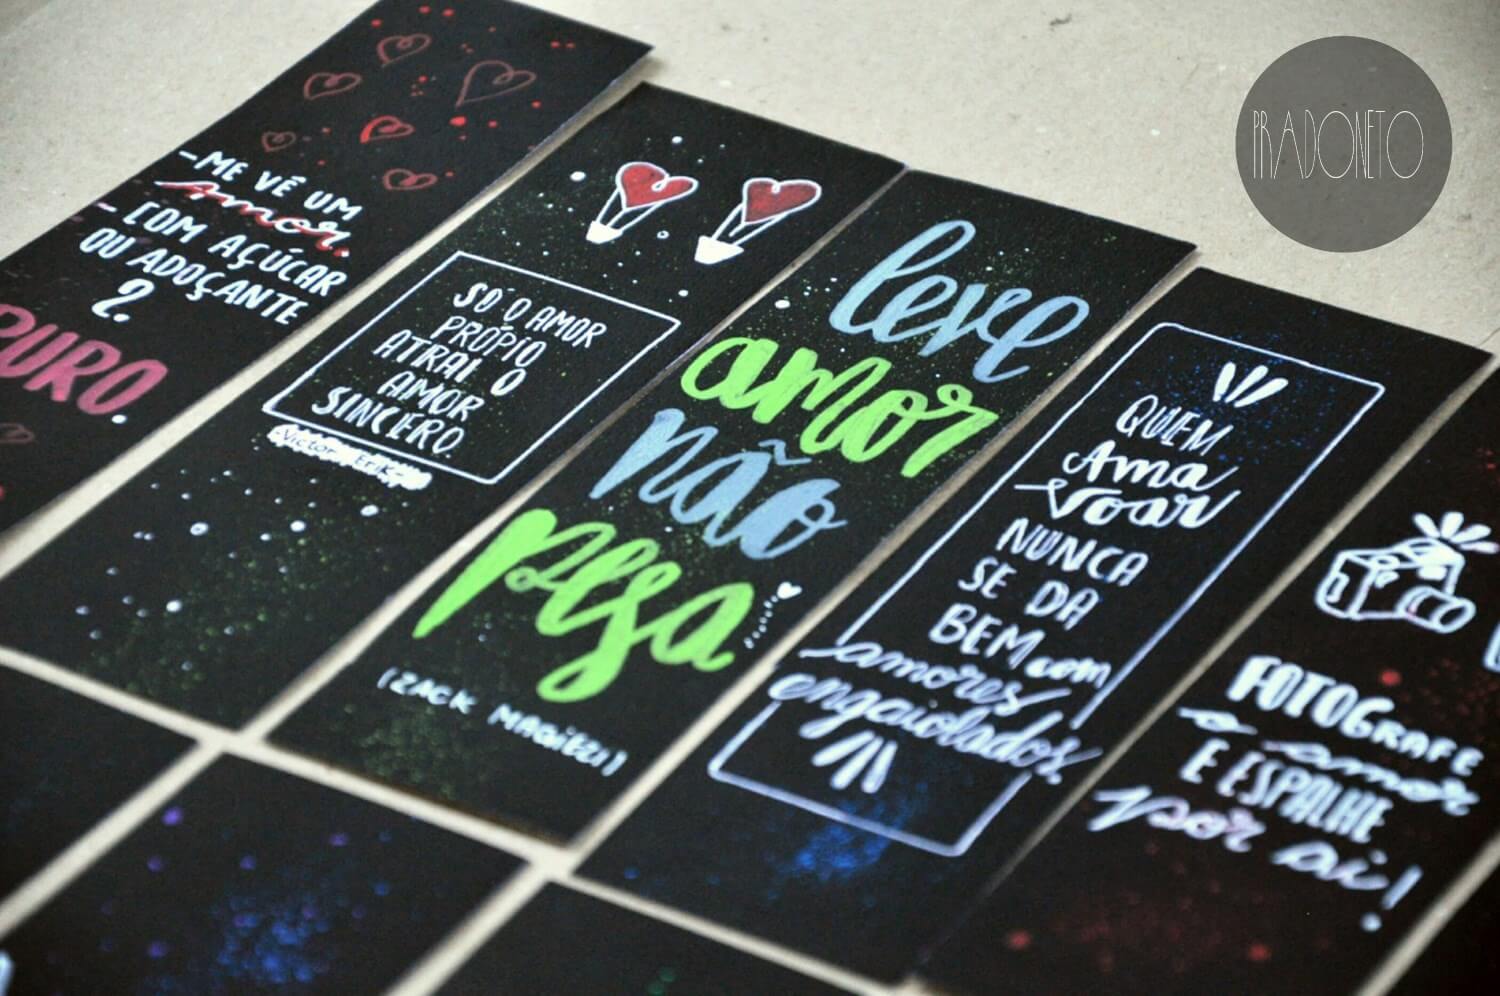 PRADONETO
-ME VÊ UM
Amor.
- COM AÇÚCAR
OU ADOÇANTE
2.
PURO.
SÓ O AMOR
PRÓPIO
ATRAI O
AMOR
SINCERO.
Victor Erik
leve
amor
não
pesa
(ZACK MAGIEZI)
QUEM
Ama
Voar
NUNCA
SE DA
BEM com
amores
engaiolados.
FOTOGRAFE
o amor
E ESPALHE
por aí!